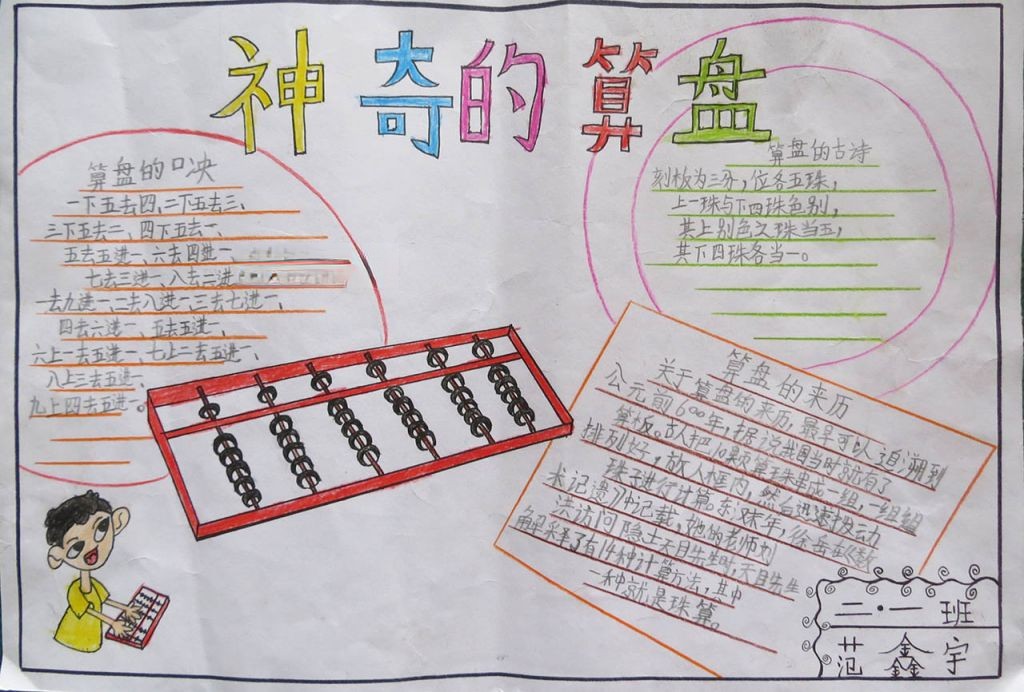 神奇的算盘
算盘的口决
一下五去四、二下五去三、
三下五去二、四下五去一、
五去五进一、六去四进一、
七去三进一、八去二进
一去九进一、二去八进一、三去七进一、
四去六进一、五去五进一、
六上一去五进一、七上二去五进一、
八上三去五进一、
九上四去五进一。
算盘的古诗
刻板为三分，位各五珠，
上一珠与下四珠色别，
其上别色之珠当五，
其下四珠各当一。
算盘的来历
关于算盘的来历，最早可以追溯到
公元前600年，据说我国当时就有了
算板。古人把10颗算珠串成一组，一组组
排列好，放入框内，然后迅速拨动
珠子进行计算。东汉末年，徐岳在《数
术记遗》中记载，她的老师刘
洪访问隐士天目先生时，天目先生
解释了有14种计算方法，其中
一种就是珠算。
二·一班
范鑫宇